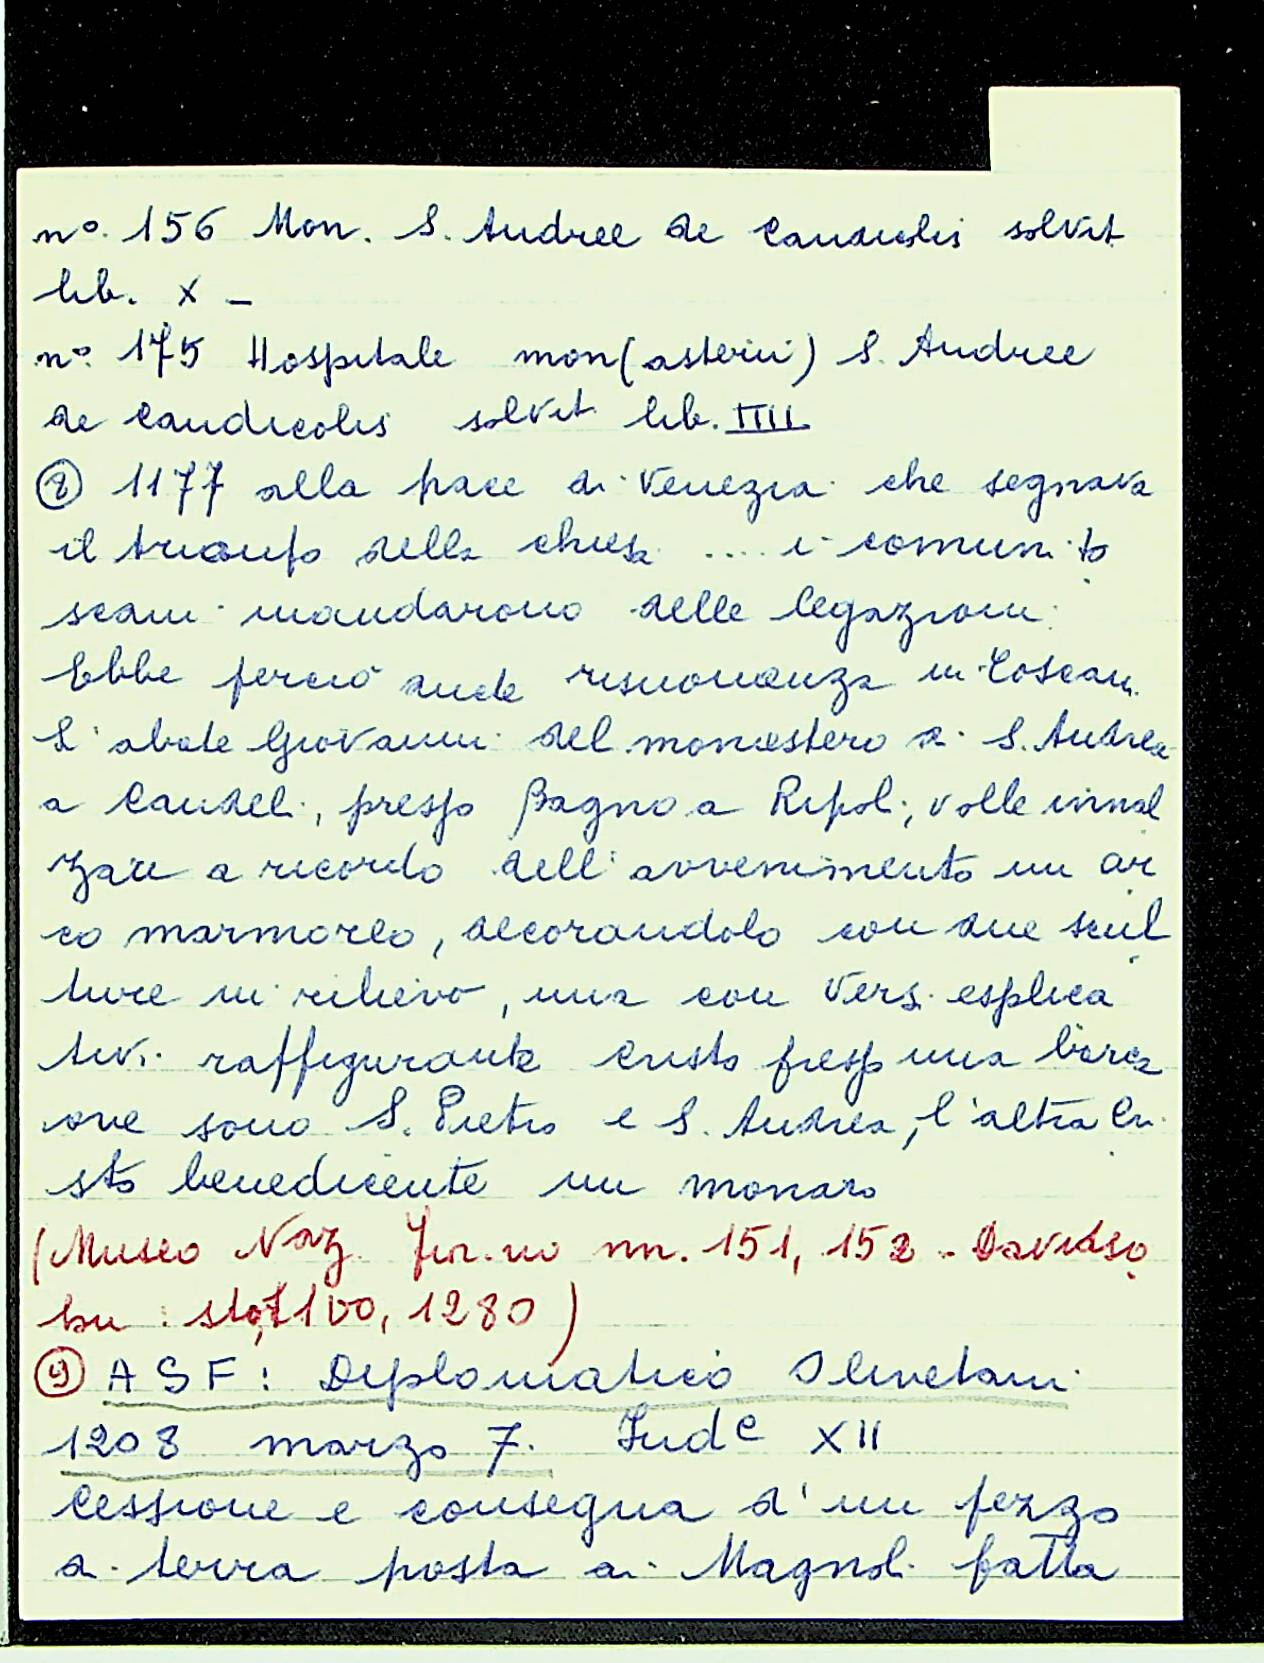 n° 156 Mon. S. Andree de Candicolis solvit
lib. X –
n° 175 Hospitale mon(asterii) S. Andree
de Candicolis solvit lib. IIII
⑧ 1177 alla pace di Venezia che segnava
il trionfo della chiesa .... i comuni to
scani mandarono delle legazioni.
Ebbe perciò anche risuonanza in Toscana.
L'abate Giovanni del monastero di S. Andrea
a Candeli, presso Bagno a Ripoli, volle innal
zare a ricordo dell'avvenimento un ar
co marmoreo, decorandolo con due scul
ture in rilievo, una con versi esplica
tivi raffigurante Cristo presso una barca
ove sono S. Pietro e S. Andrea, l'altra Cri
sto benedicente un monaco
(Museo Naz. nn. 151, 152 - Davidso
hn : 1280)
⑨ ASF: Diplomatico Olivetani
1208 marzo 7. Ind.e XII
Cessione e consegna d'un pezzo
di terra posta a Magnoli fatta